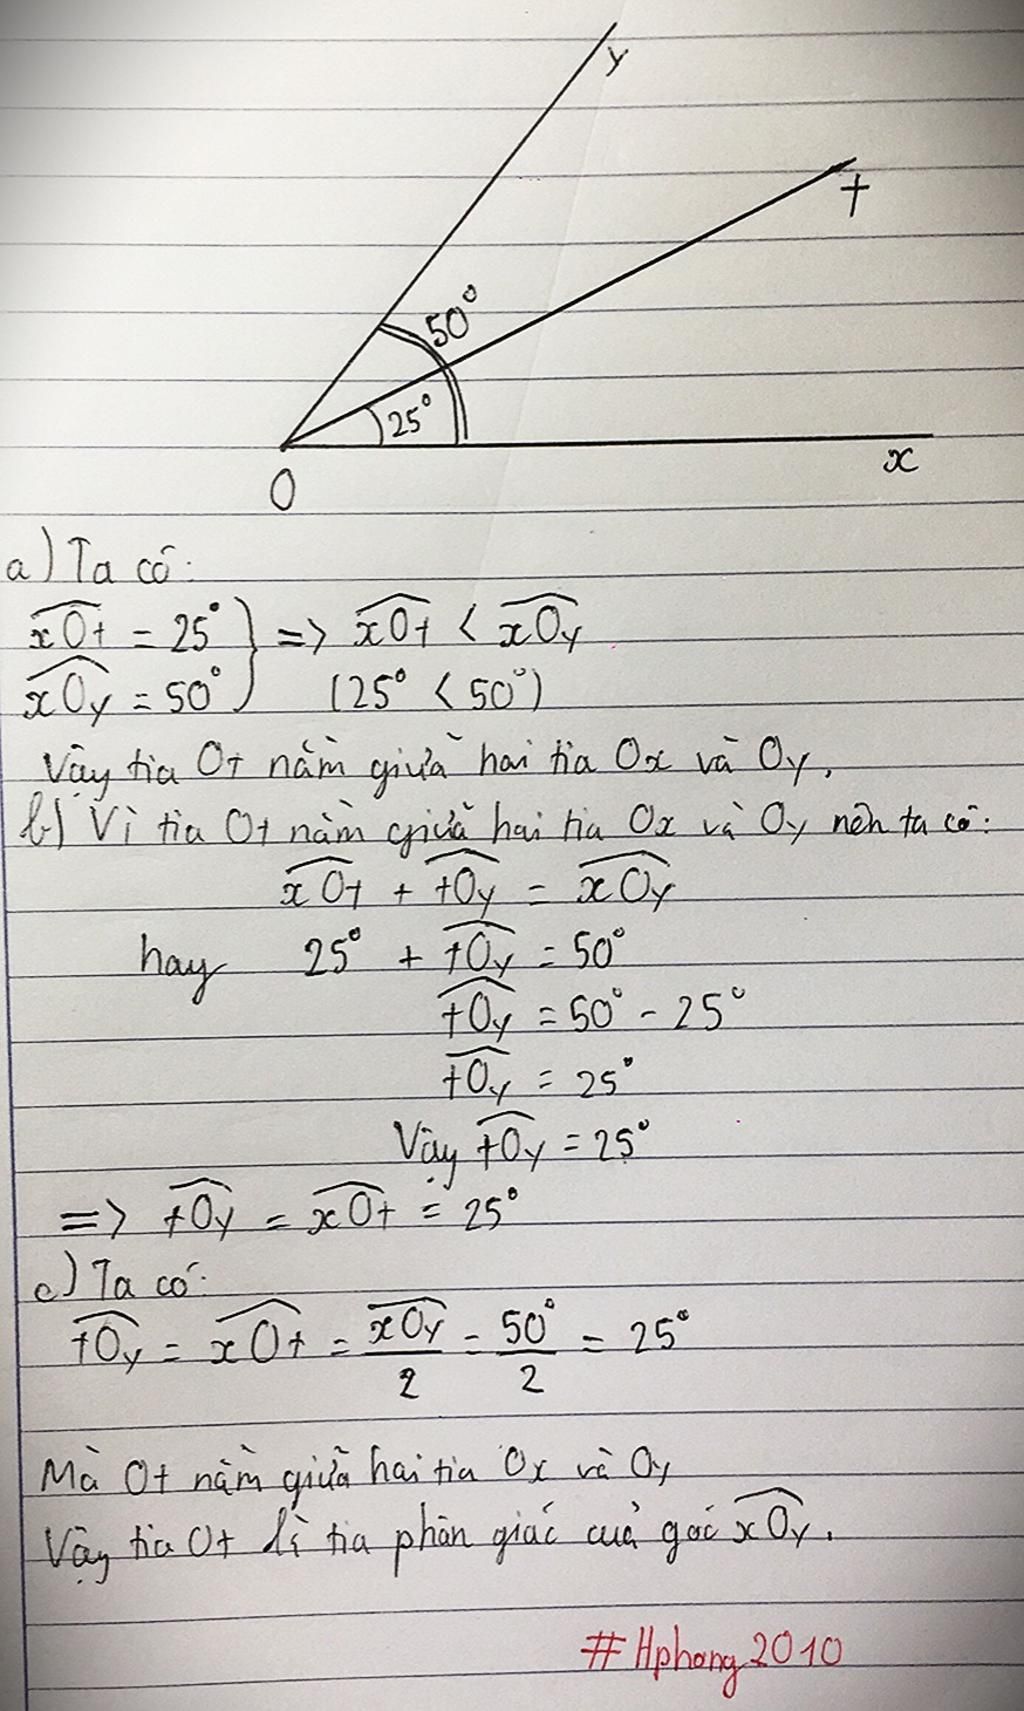 y
t
50°
25°
x
O
a) Ta có:
x͡Ot = 25° } => x͡Ot < x͡Oy
x͡Oy = 50° (25° < 50°)
Vậy tia Ot nằm giữa hai tia Ox và Oy.
b) Vì tia Ot nằm giữa hai tia Ox và Oy nên ta có:
x͡Ot + t͡Oy = x͡Oy
hay 25° + t͡Oy = 50°
t͡Oy = 50° - 25°
t͡Oy = 25°
Vậy t͡Oy = 25°
=> t͡Oy = x͡Ot = 25°
c) Ta có:
t͡Oy = x͡Ot = x͡Oy/2 = 50°/2 = 25°
Mà Ot nằm giữa hai tia Ox và Oy
Vậy tia Ot là tia phân giác của góc x͡Oy.
#Hphong2010